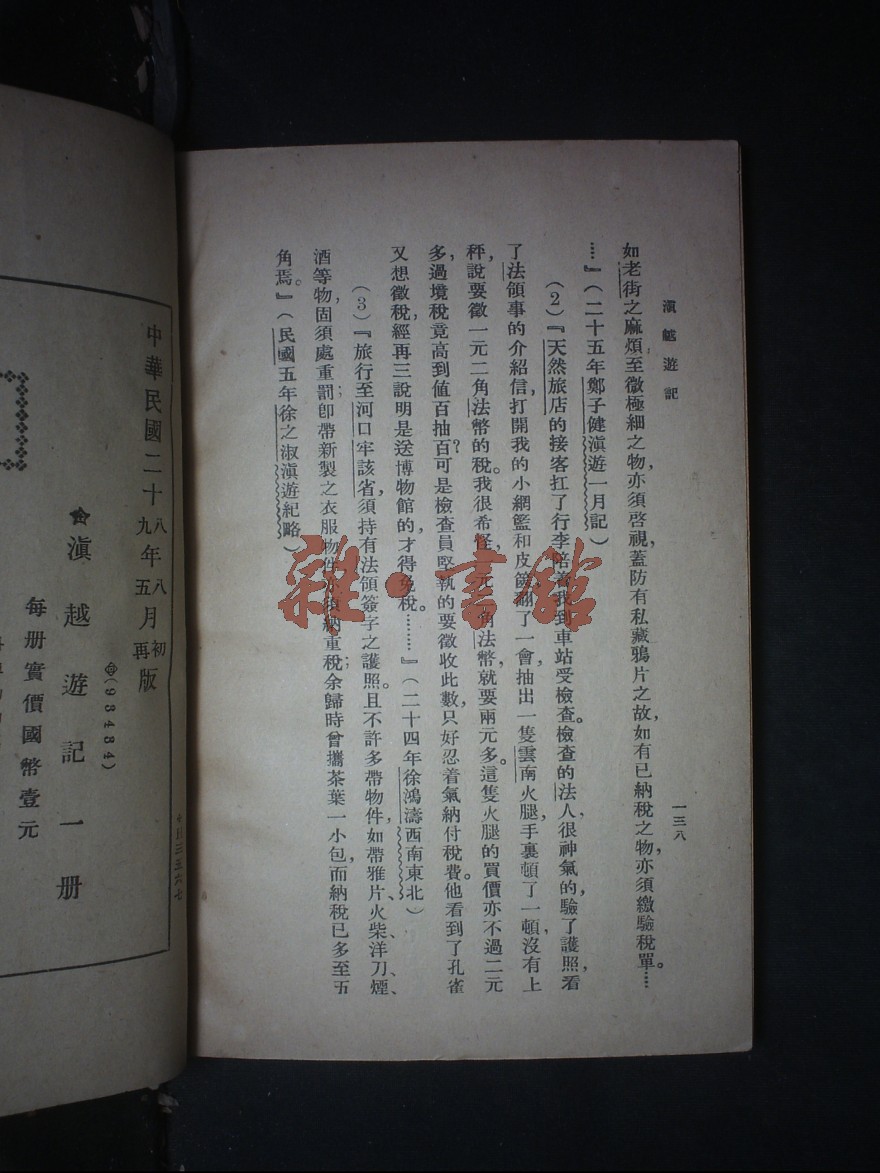 滇越遊記
一三八
如老街之麻煩至微極細之物，亦須啓視，蓋防有私藏鴉片之故，如有已納稅之物亦須繳驗稅單。……
…』（二十五年鄭子健滇遊一月記）
（2）『天然旅店的接客扛了行李陪着我到車站受檢查。檢查的法人，很神氣的，驗了護照，看
了法領事的介紹信，打開我的小網籃和皮篋，翻了一會，抽出一隻雲南火腿，手裏頓了一頓，沒有上
秤，說要徵一元二角法幣的稅。我很希怪，元二角法幣，就要兩元多。這隻火腿的買價亦不過二元
多，過境稅竟高到値百抽百？可是檢查員堅執的要徵收此數，只好忍着氣納付稅費。他看到了孔雀
又想徵稅，經再三說明是送博物館的，才得免稅。………』（二十四年徐鴻濤西南東北）
（3）『旅行至河口牢該省，須持有法領簽字之護照。且不許多帶物件，如帶雅片、火柴、洋刀、煙、
酒等物，固須處重罰；卽帶新製之衣服物件亦須納重稅；余歸時曾攜茶葉一小包，而納稅已多至五
角焉。』（民國五年徐之淑滇遊紀略）
雜·書館
中華民國二十八年八月初版
九五再
(93484)
滇越遊記一册
每册實價國幣壹元